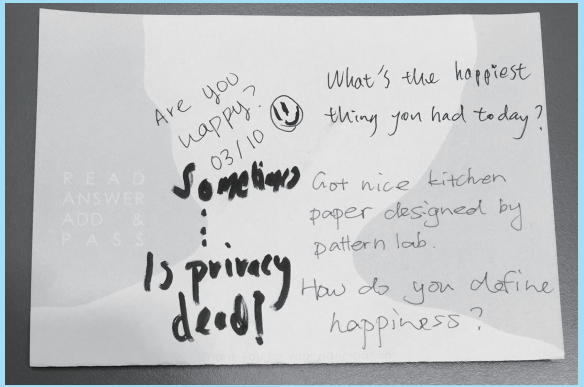 READ
ANSWER
ADD &
PASS
Are you
happy?
03/10
Sometimes
Is privacy
dead!
What's the happiest
thing you had today?
Got nice kitchen
paper designed by
pattern lab.
How do you define
happiness?